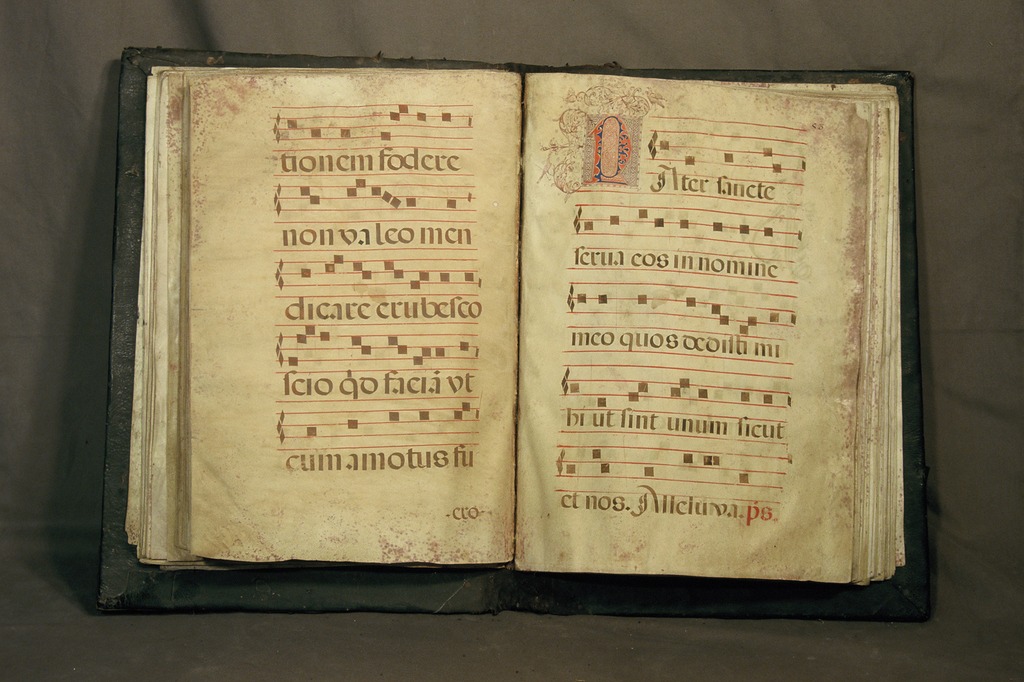 tionem fodere
non valeo men
dicare erubesco
scio qd̄ faciā vt
cum amotus fu
-ero-
PAter sancte
serua eos in nomine
meo quos dedisti mi
hi ut sint unum sicut
et nos. Alleluya. ps.